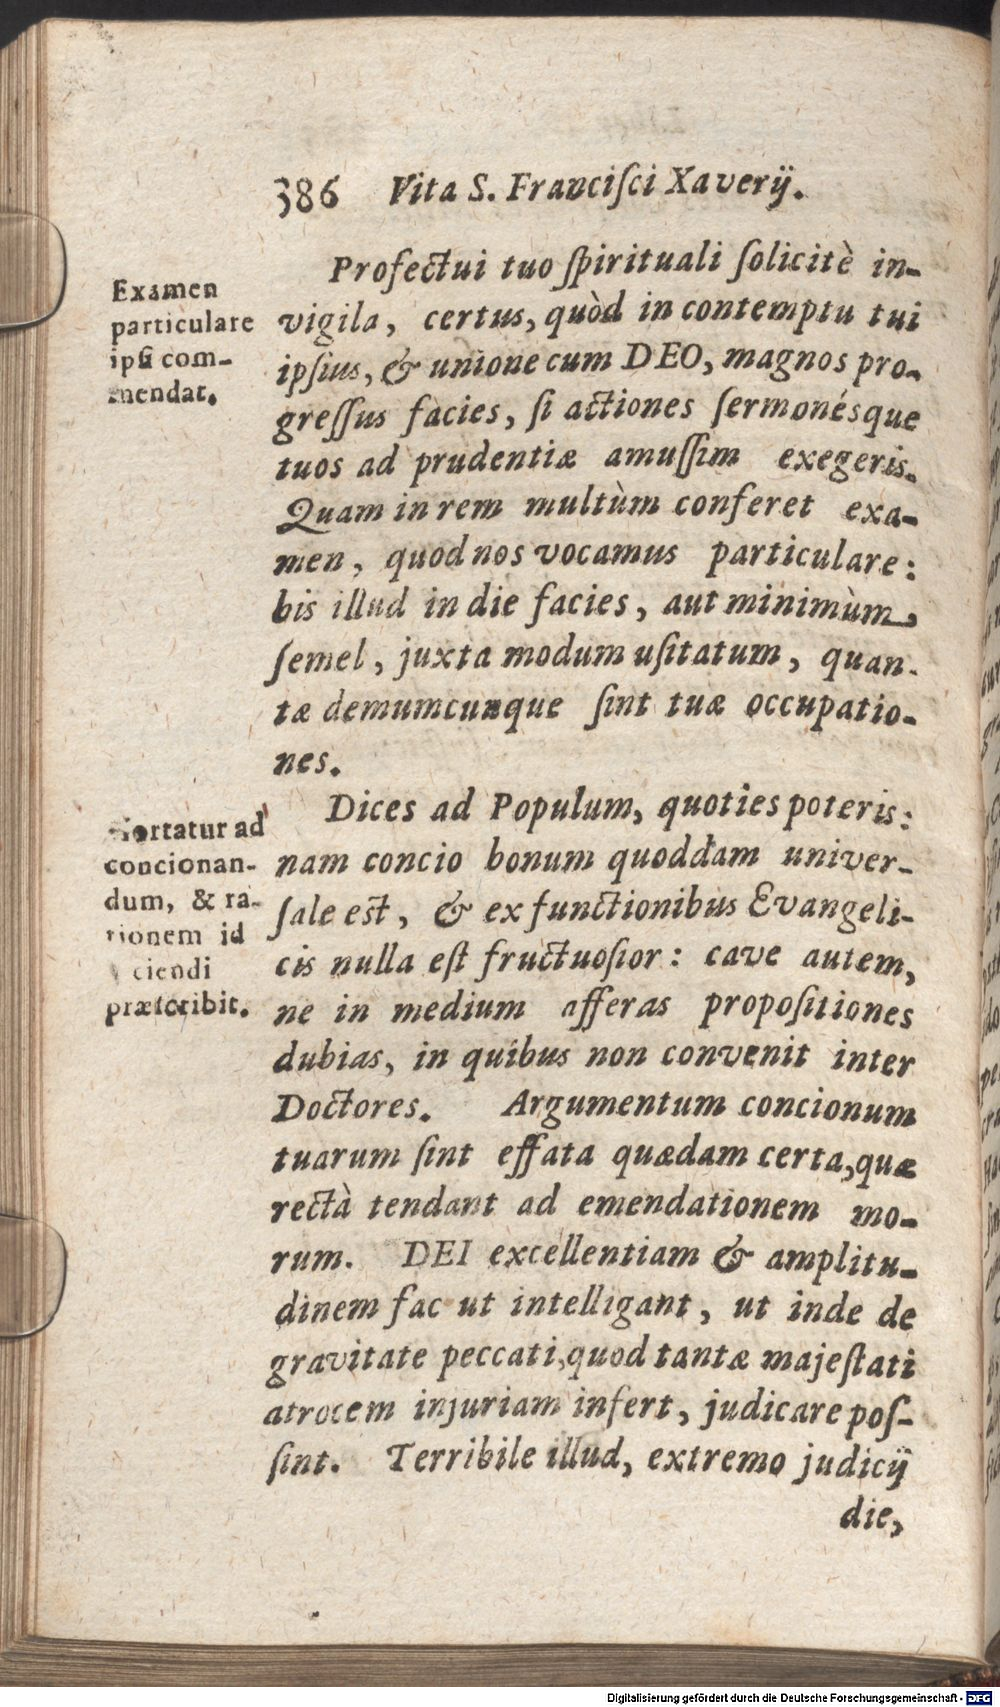 386 Vita S. Franciſci Xaverÿ.
Examen
particulare
ipſi com-
mendat.
Profectui tuo ſpirituali ſolicitè in-
vigila, certus, quòd in contemptu tui
ipſius, & unione cum DEO, magnos pro-
greſſus facies, ſi actiones ſermonésque
tuos ad prudentiæ amuſſim exegeris.
Quam in rem multùm conferet exa-
men, quod nos vocamus particulare:
bis illud in die facies, aut minimùm,
ſemel, juxta modum uſitatum, quan-
tæ demumcunque ſint tuæ occupatio-
nes.
Hortatur ad
concionan-
dum, & ra-
tionem id
ciendi
præſcribit.
Dices ad Populum, quoties poteris:
nam concio bonum quoddam univer-
ſale eſt, & ex functionibus Evangeli-
cis nulla eſt fructuoſior: cave autem,
ne in medium afferas propoſitiones
dubias, in quibus non convenit inter
Doctores. Argumentum concionum
tuarum ſint effata quædam certa, quæ
rectà tendant ad emendationem mo-
rum. DEI excellentiam & amplitu-
dinem fac ut intelligant, ut inde de
gravitate peccati, quod tantæ majeſtati
atrocem injuriam infert, judicare poſ-
ſint. Terribile illud, extremo judicÿ
die,
Digitalisierung gefördert durch die Deutsche Forschungsgemeinschaft - DFG